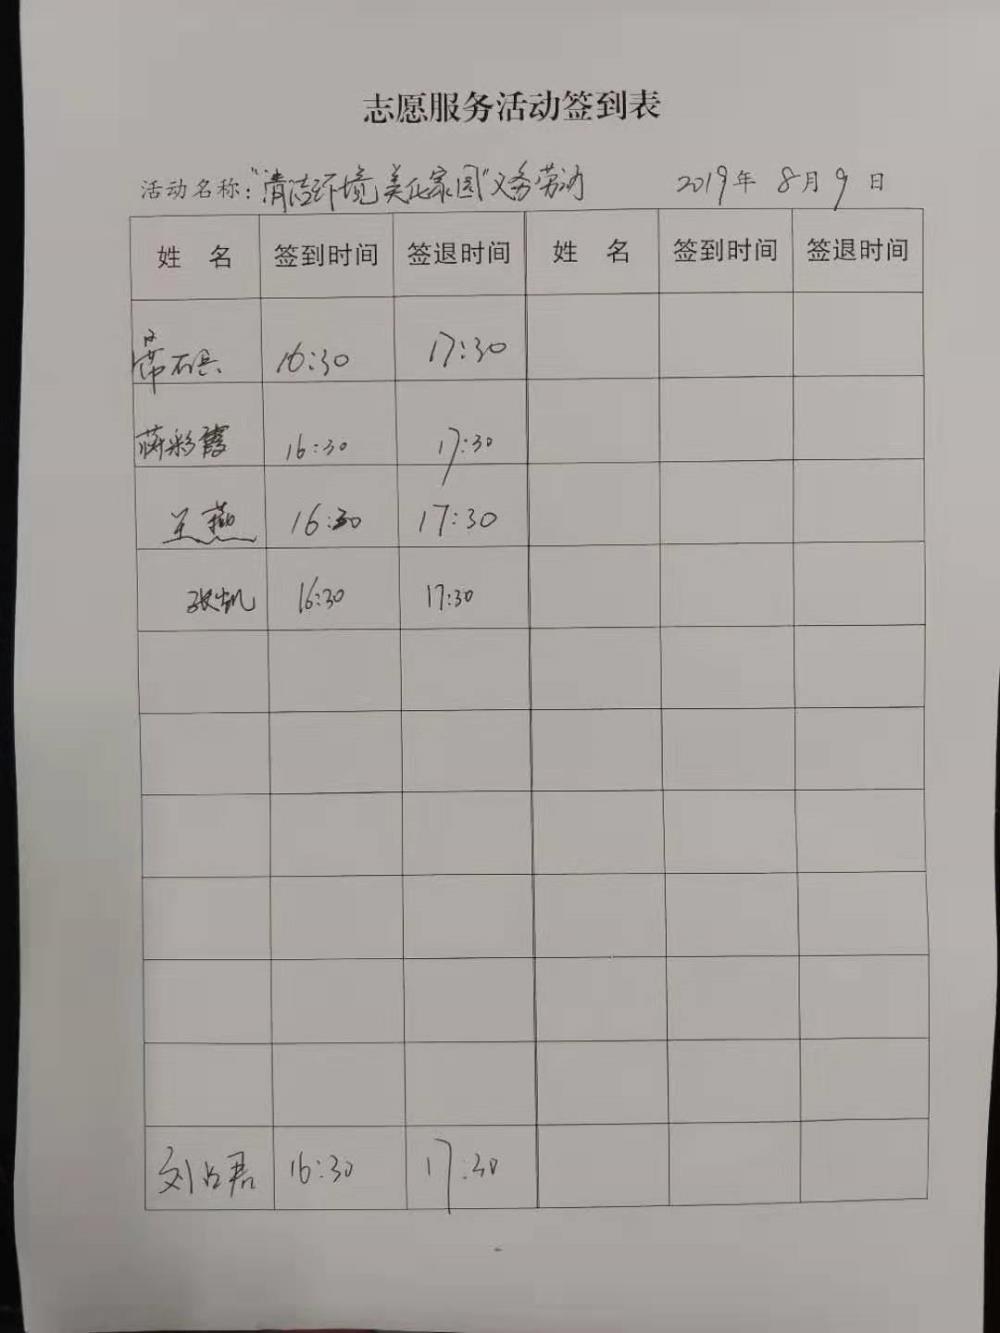 志愿服务活动签到表
活动名称："清洁环境 美化家园"义务劳动 2019年 8月 9日
姓 名 签到时间 签退时间 姓 名 签到时间 签退时间
16:30 17:30
蒋彩霞 16:30 17:30
王燕 16:30 17:30
张凯 16:30 17:30
刘占君 16:30 17:30